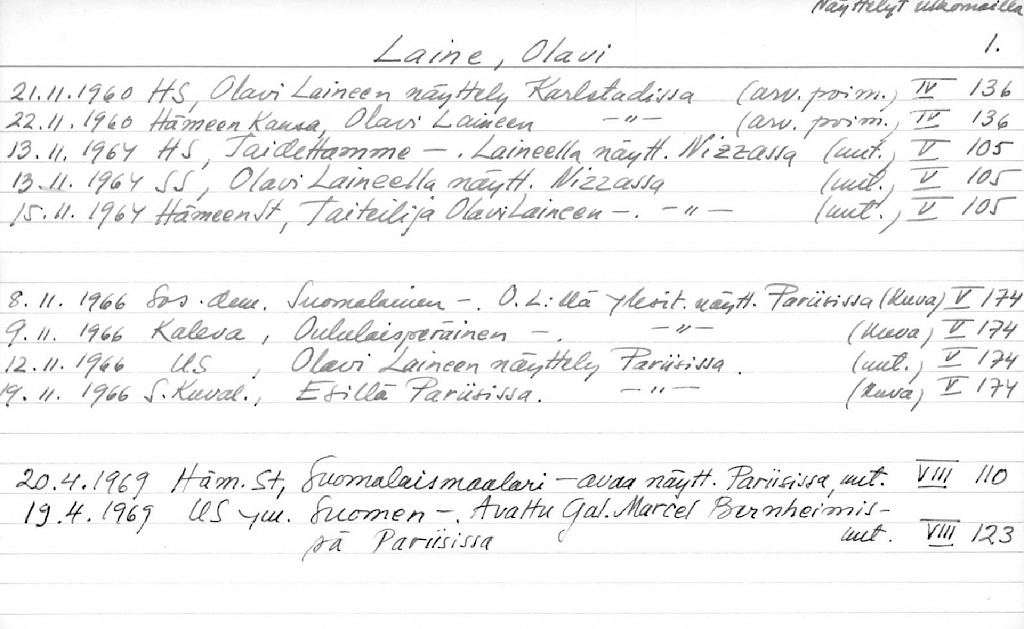 Näyttelyt ulkomailla
1.
Laine, Olavi
21.11.1960 HS, Olavi Laineen näyttely Karlstadissa (arv. poim.) IV 136
22.11.1960 Hämeen Kansa, Olavi Laineen -"- (arv. poim.) IV 136
13.11.1964 HS, Taidettamme -. Laineella näytt. Nizzassa (uut.) V 105
13.11.1964 SS, Olavi Laineella näytt. Nizzassa (uut.) V 105
15.11.1964 Hämeen St, Taiteilija Olavi Laineen -. -"- (uut.) V 105
8.11.1966 Sos.dem. Suomalainen -. O.L:llä yksit. näytt. Pariisissa (kuva) V 174
9.11.1966 Kaleva, Oululaisperäinen -. -"- (kuva) V 174
12.11.1966 US, Olavi Laineen näyttely Pariisissa. (uut.) V 174
19.11.1966 S.Kuval., Esillä Pariisissa. -"- (kuva) V 174
20.4.1969 Häm.St, Suomalaismaalari - avaa näytt. Pariisissa, uut. VIII 110
19.4.1969 US ym. Suomen -. Avattu Gal. Marcel Bernheimis-
sä Pariisissa uut. VIII 123